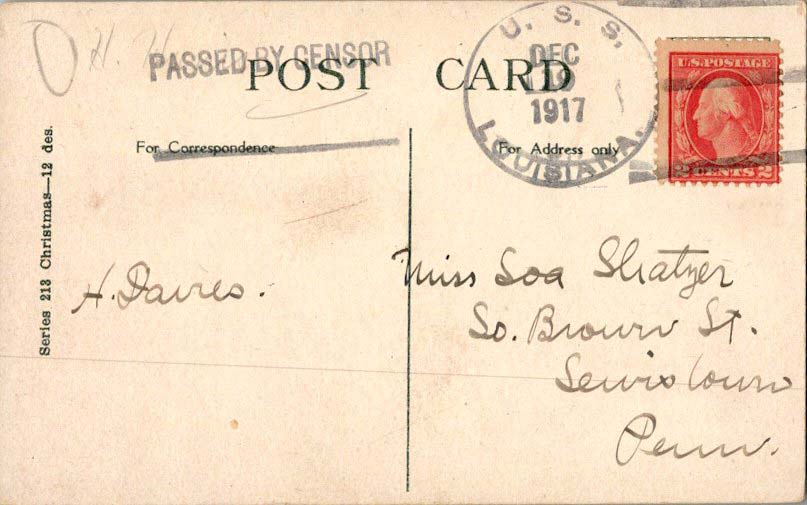 H. H.
PASSED BY CENSOR
POST CARD
U. S. S.
DEC
1917
LOUISIANA.
U.S. POSTAGE
2 CENTS 2
For Correspondence
For Address only
Series 213 Christmas—12 des.
H. Davies.
Miss Loa Shatzer
So. Brown St.
Lewistown
Penn.